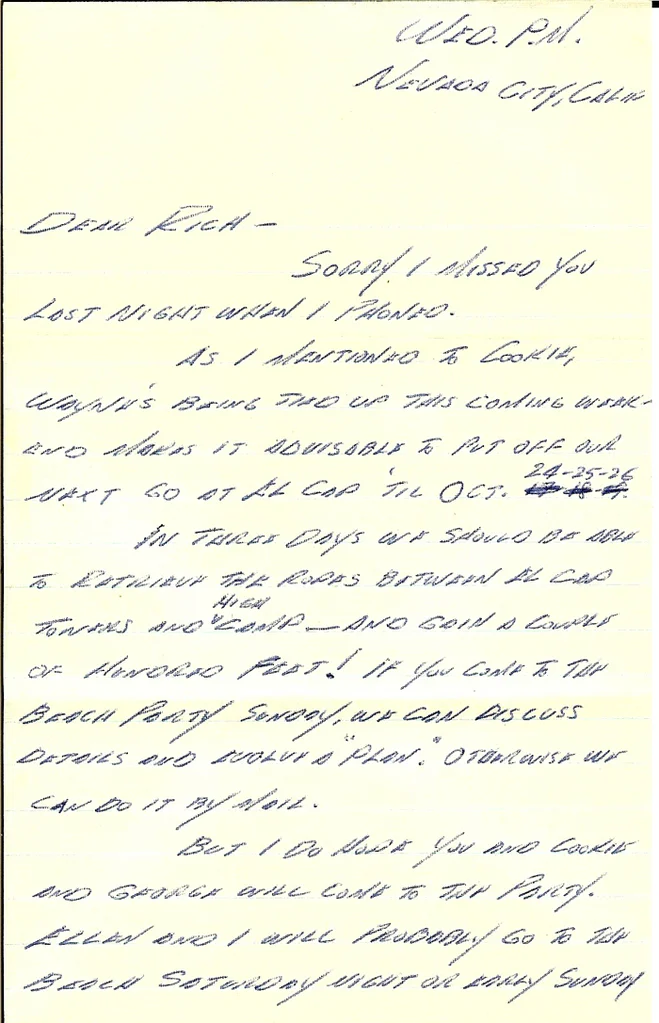 WED. P.M.
NEVADA CITY, CALIF
DEAR RICH —
SORRY I MISSED YOU
LAST NIGHT WHEN I PHONED.
AS I MENTIONED TO COOKIE,
WAYNE'S BEING TIED UP THIS COMING WEEK-
END MAKES IT ADVISABLE TO PUT OFF OUR
24-25-26
NEXT GO AT EL CAP 'TIL OCT. 17-18-19.
IN THREE DAYS WE SHOULD BE ABLE
TO RETRIEVE THE ROPES BETWEEN EL CAP
HIGH
TOWERS AND "CAMP — AND GAIN A COUPLE
OF HUNDRED FEET! IF YOU COME TO THE
BEACH PARTY SUNDAY, WE CAN DISCUSS
DETAILS AND EVOLVE A "PLAN." OTHERWISE WE
CAN DO IT BY MAIL.
BUT I DO HOPE YOU AND COOKIE
AND GEORGE WILL COME TO THE PARTY.
ELLEN AND I WILL PROBABLY GO TO THE
BEACH SATURDAY NIGHT OR EARLY SUNDAY